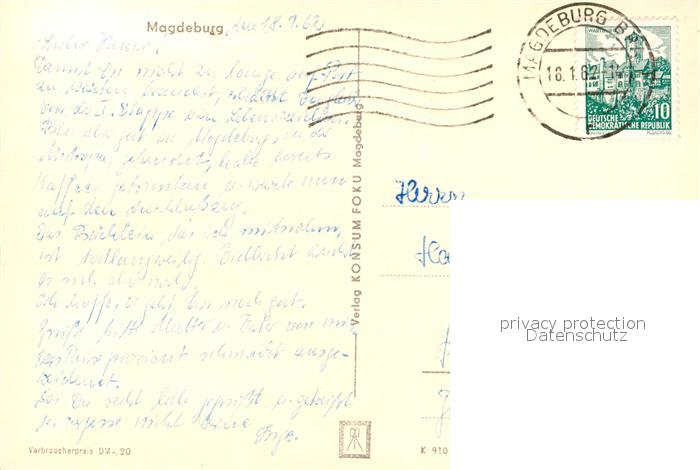 Magdeburg, den 18.1.62
Lieber Hans!
Damit Du nicht zu lange auf Post
zu warten brauchst, erhältst Du gleich
von der I. Etappe ein Lebenszeichen.
Bin also gut in Magdeburg, in der
Mitropa, gelandet, habe bereits
Kaffee getrunken u. warte nun
auf den Anschlußzug.
Das Büchlein, das ich mitnahm,
ist stocklangweilig. Vielleicht ändert
es sich aber noch.
Ich hoffe, es geht Dir noch gut.
Grüße bitte Mutter u. Vater von mir.
Der Reiseproviant schmeckt ausge-
zeichnet.
Sei Du recht lieb gegrüßt u. geküßt
u. vergesse nicht Deine
Inge.
Verbraucherpreis DM -,20
Verlag KONSUM FOKU Magdeburg
MAGDEBURG
18.1.62
WARTBURG
10
DEUTSCHE
DEMOKRATISCHE REPUBLIK
Herrn
privacy protection
Datenschutz
K 910